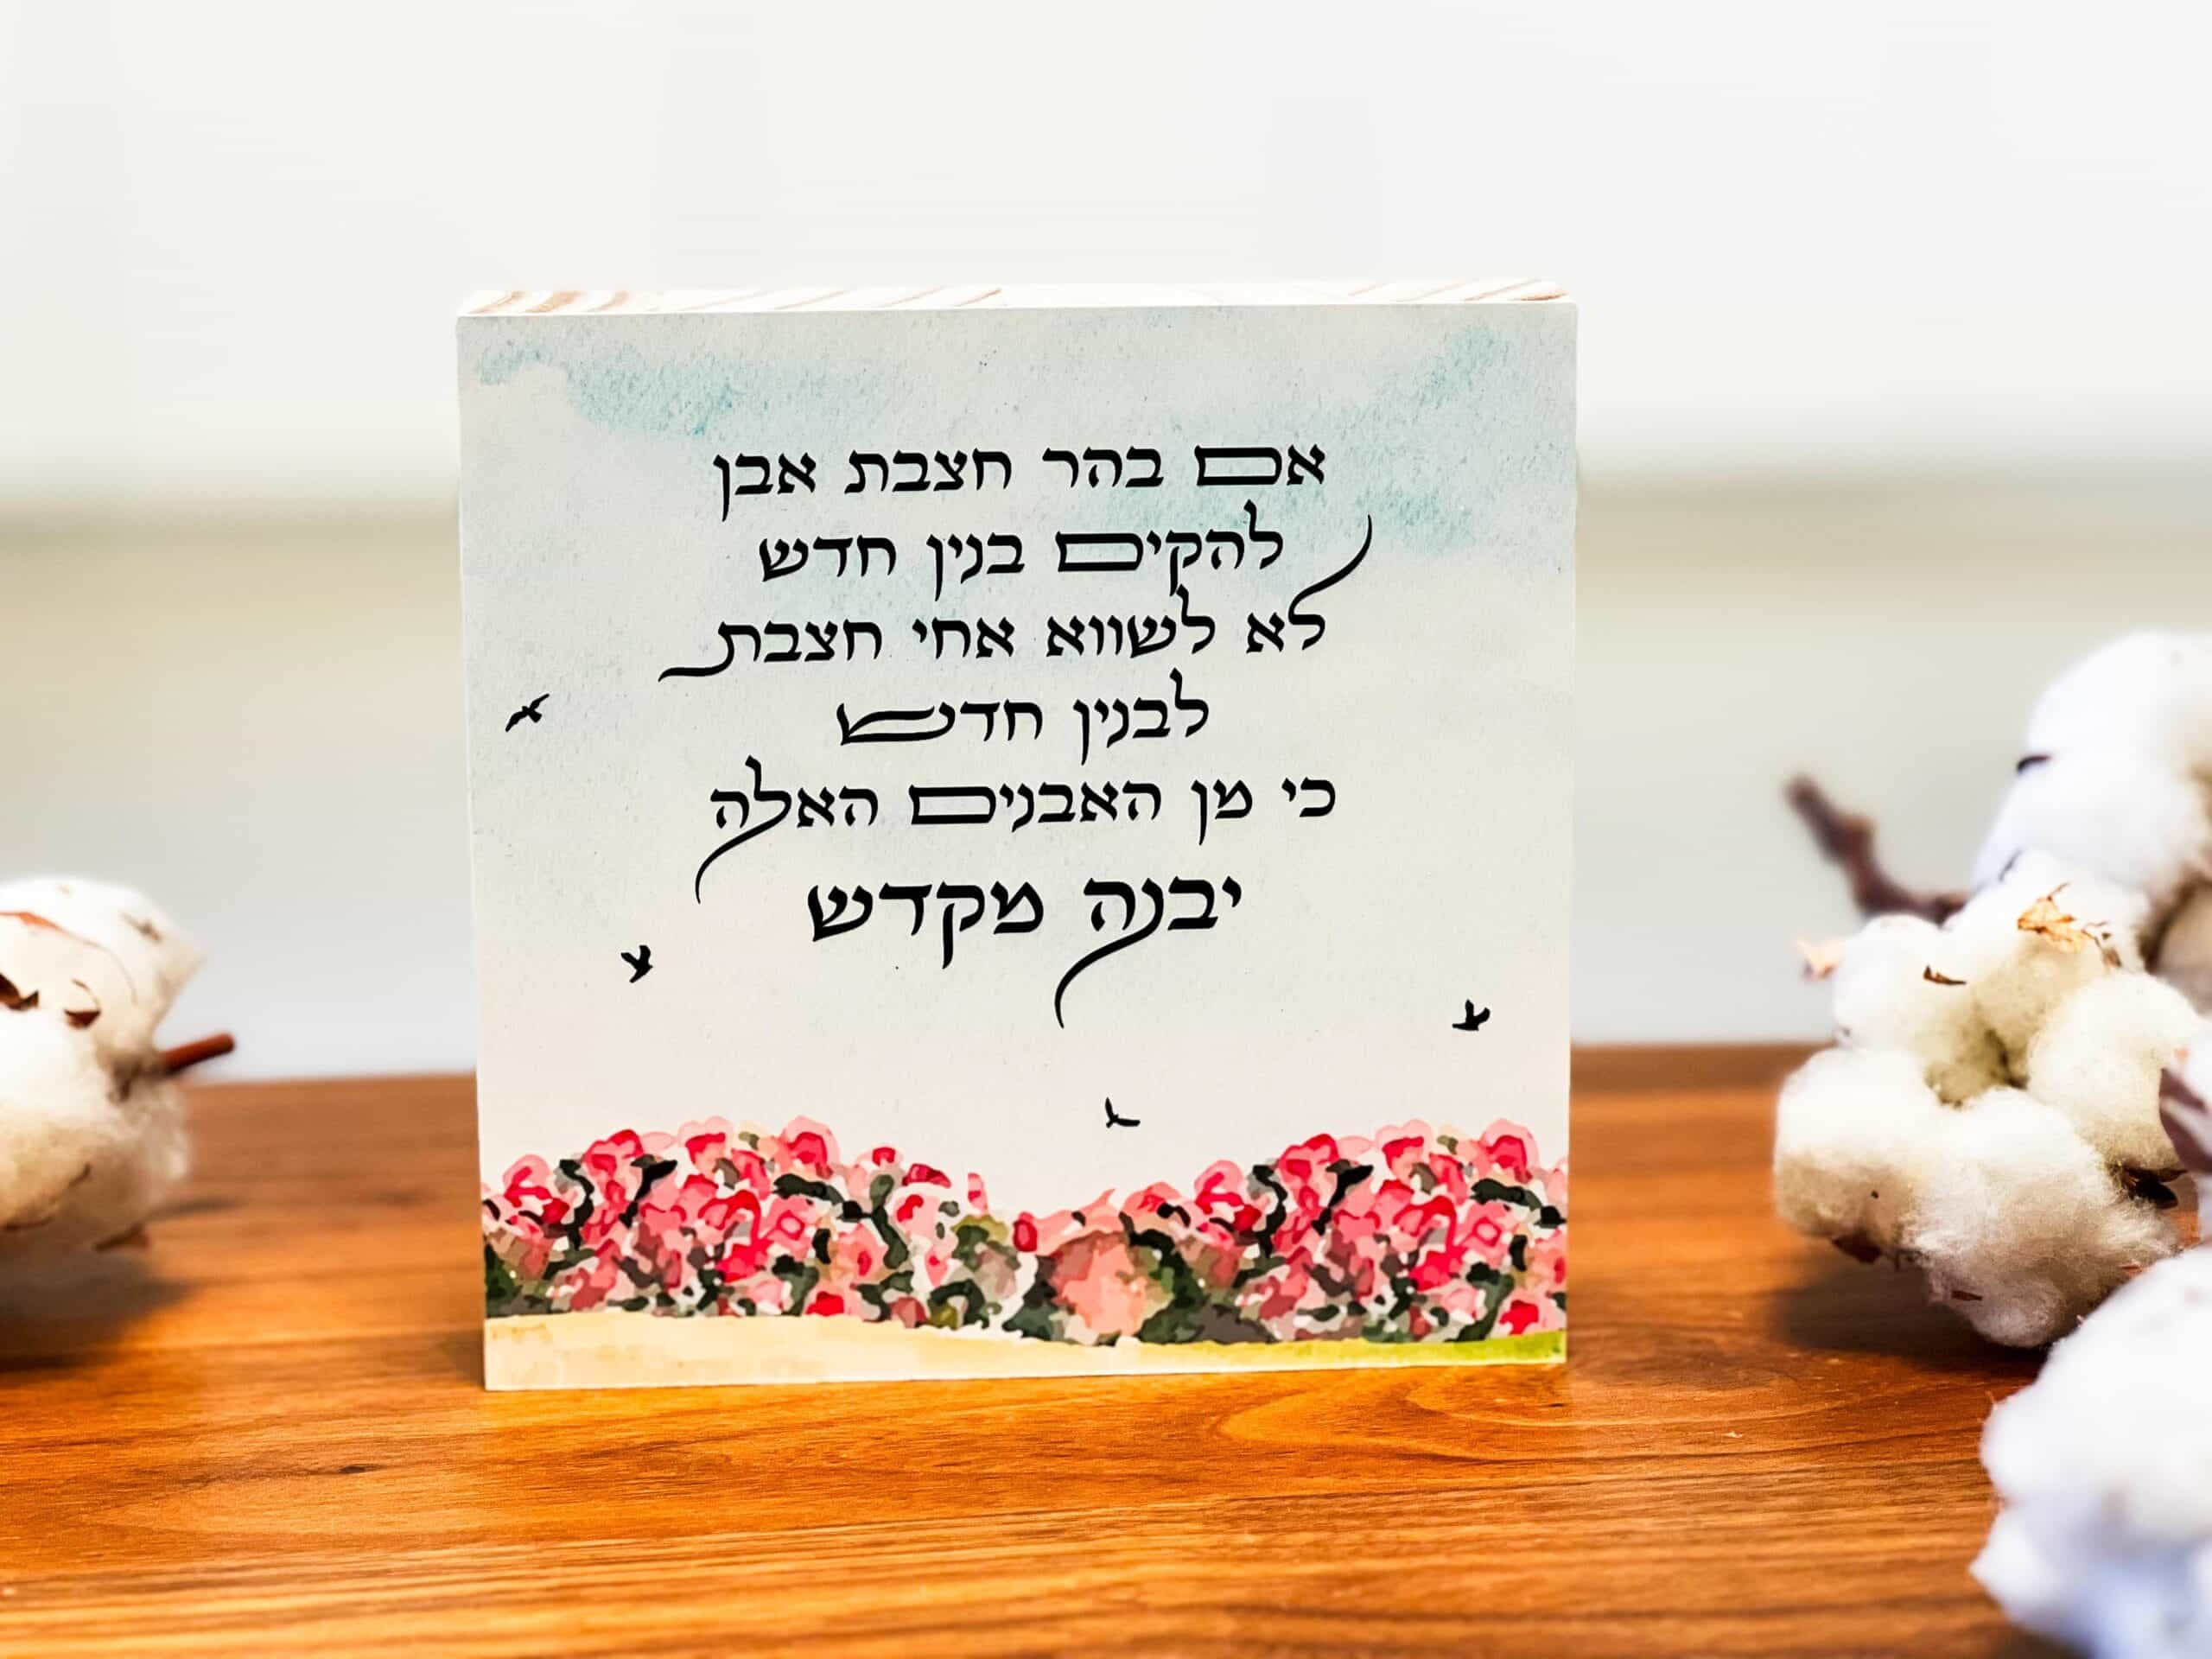 אם בהר חצבת אבן
להקים בנין חדש
לא לשווא אחי חצבת
לבנין חדש
כי מן האבנים האלה
יבנה מקדש